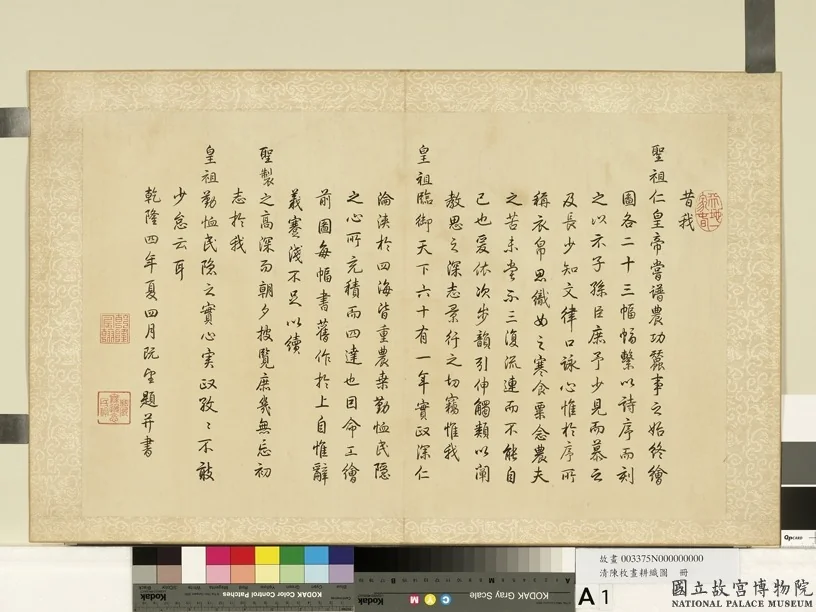 昔我
聖祖仁皇帝嘗譜農功蠶事之始終繪
圖各二十三幅幅繫以詩序而刻
之以示子孫臣庶予少見而慕之
及長少知文律口詠心惟於序所
稱衣帛思織女之寒食粟念農夫
之苦未嘗不三復流連而不能自
已也爰依次步韻引伸觸類以闡
教思之深志景行之切竊惟我
皇祖臨御天下六十有一年實政深仁
淪浹於四海皆重農桑勤恤民隱
之心所充積而四達也因命工繪
前圖每幅書舊作於上自惟辭
義蹇淺不足以續
聖製之高深而朝夕披覽庶幾無忘初
志於我
皇祖勤恤民隱之實心実政孜〻不敢
少怠云耳
乾隆四年夏四月既望題并書
KODAK Color Control Patches
KODAK Gray Scale
C
Y
M
A 1
故畫 003375N000000000
清陳枚畫耕織圖 冊
國立故宮博物院
NATIONAL PALACE MUSEUM